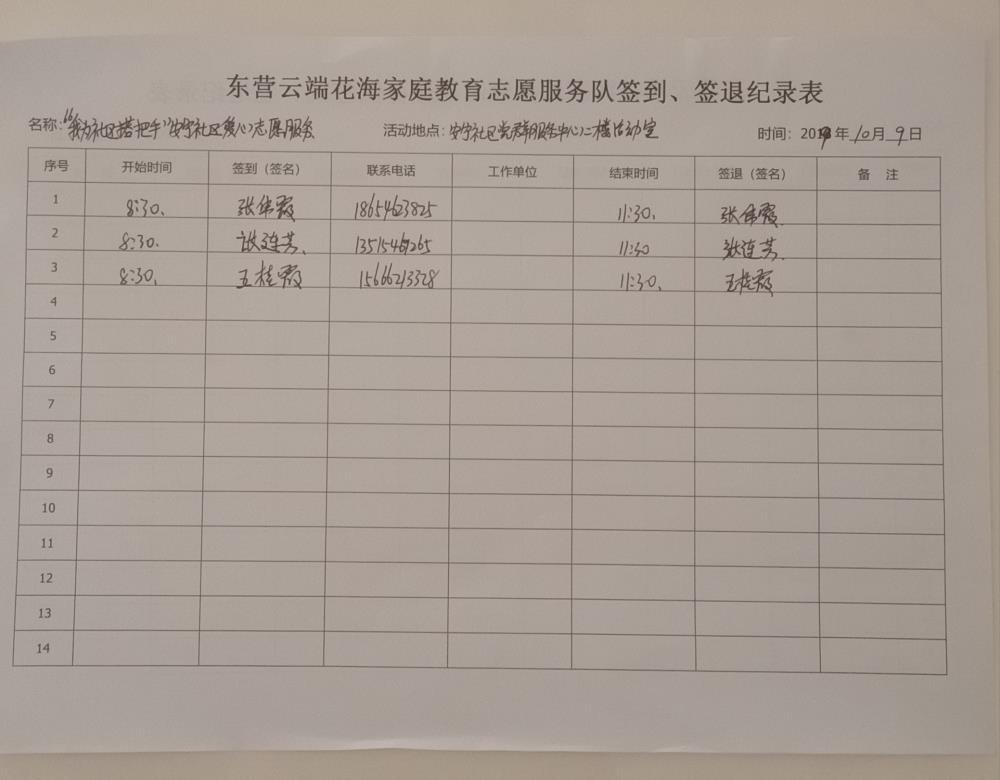 东营云端花海家庭教育志愿服务队签到、签退纪录表
名称：“我为社区搭把手”安宁社区爱心志愿服务 活动地点：安宁社区党群服务中心二楼活动室 时间：2019年10月9日
序号 开始时间 签到（签名） 联系电话 工作单位 结束时间 签退（签名） 备 注
1 8:30. 张伟霞 18654623825 11:30. 张伟霞
2 8:30. 张连芳. 11:30 张连芳.
3 8:30. 王桂霞 15666213328 11:30. 王桂霞
4
5
6
7
8
9
10
11
12
13
14